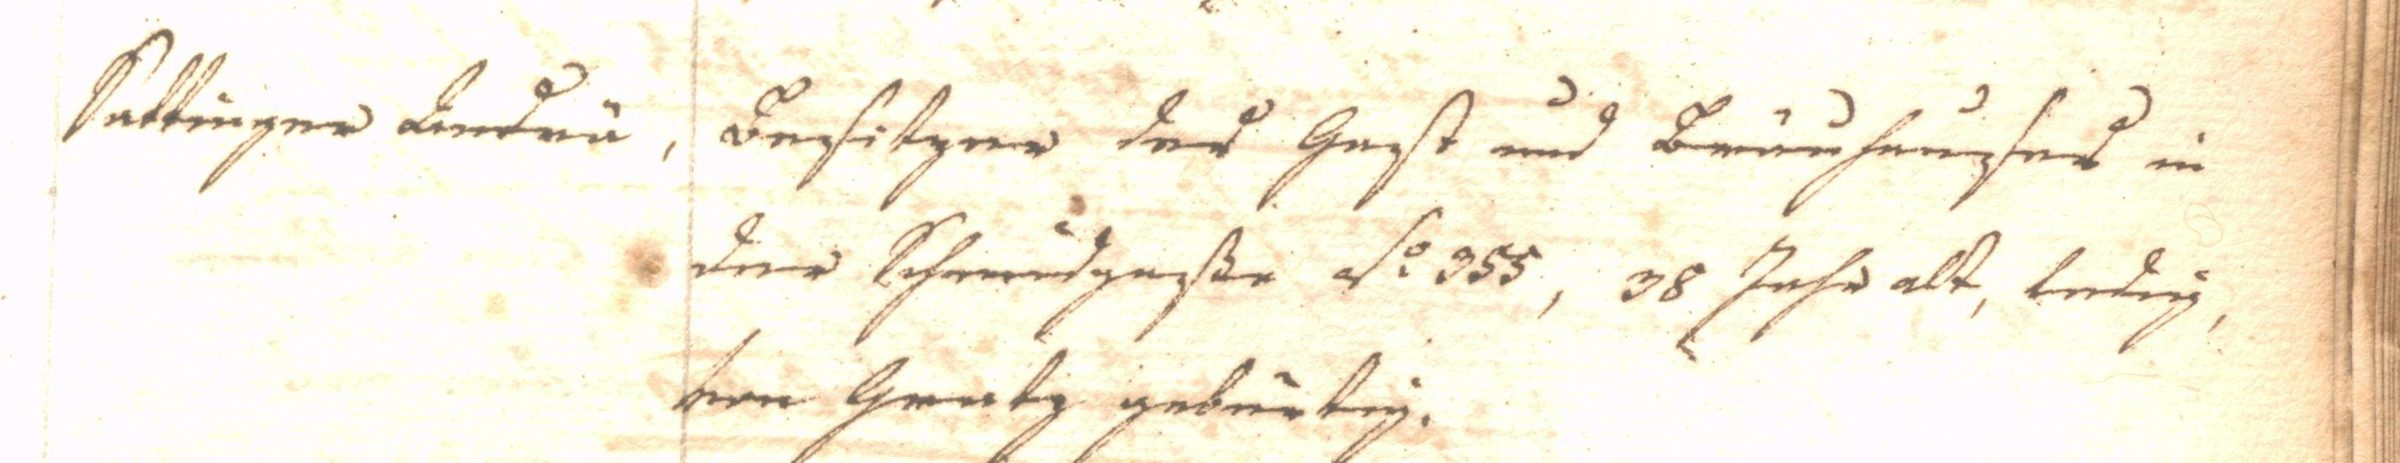 Sattinger Andrä, Besitzer des Gast und Bräuhauses in
der Schmidgasse No 355, 38 Jahr alt, ledig,
von Gratz gebürtig.